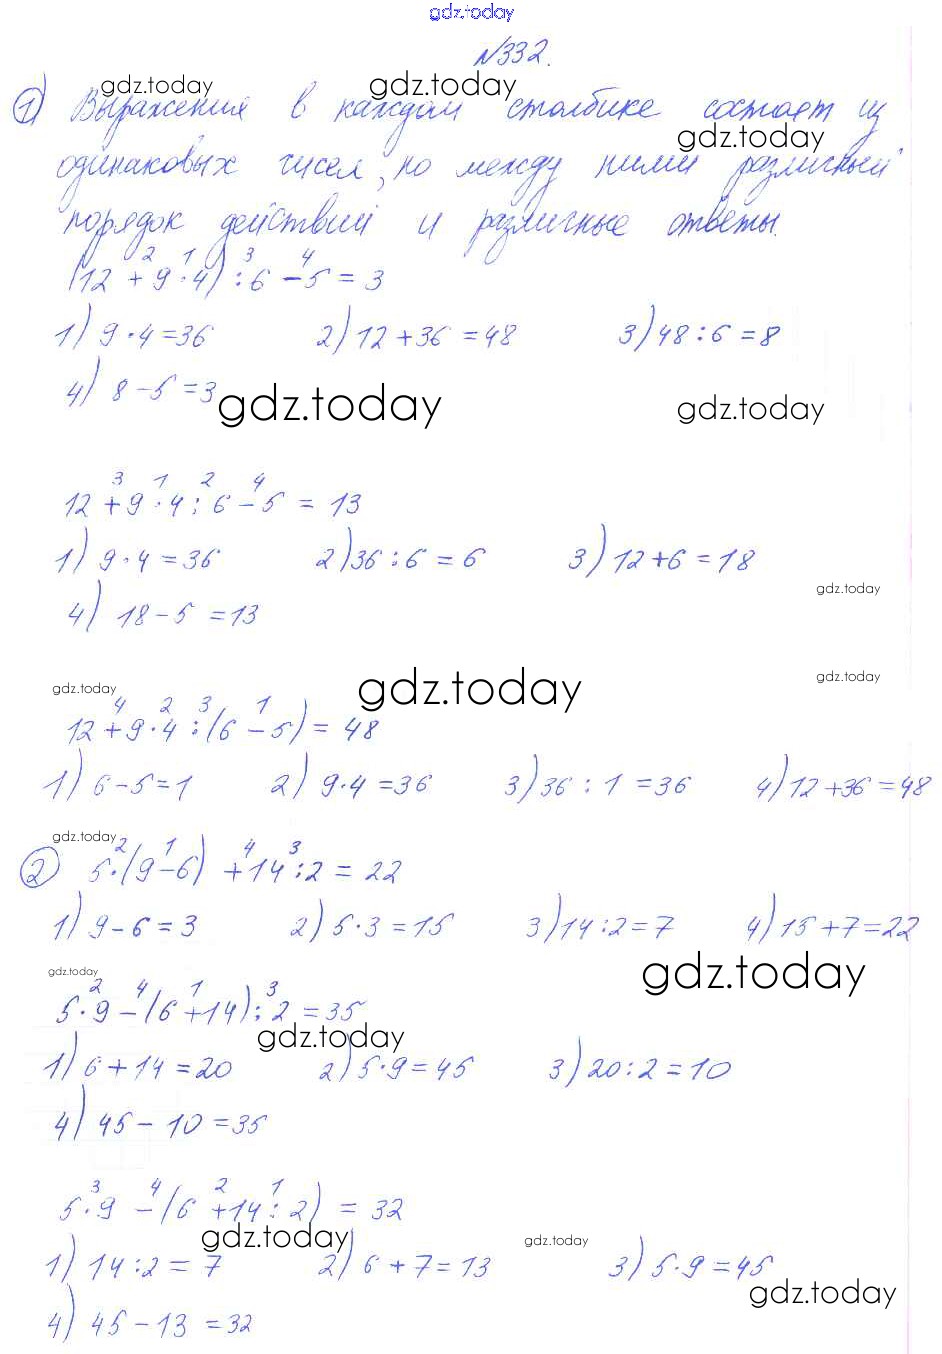 gdz.today
№332.
gdz.today gdz.today
1) Выражения в каждом столбике состоят из
gdz.today
одинаковых чисел, но между ними различный
порядок действий и различные ответы.
2 1 3 4
(12 + 9 · 4) : 6 - 5 = 3
1) 9 · 4 = 36 2) 12 + 36 = 48 3) 48 : 6 = 8
4) 8 - 5 = 3
gdz.today gdz.today
3 1 2 4
12 + 9 · 4 : 6 - 5 = 13
1) 9 · 4 = 36 2) 36 : 6 = 6 3) 12 + 6 = 18
gdz.today
4) 18 - 5 = 13
gdz.today gdz.today gdz.today
4 2 3 1
12 + 9 · 4 : (6 - 5) = 48
1) 6 - 5 = 1 2) 9 · 4 = 36 3) 36 : 1 = 36 4) 12 + 36 = 48
gdz.today
2 1 4 3
2) 5 · (9 - 6) + 14 : 2 = 22
1) 9 - 6 = 3 2) 5 · 3 = 15 3) 14 : 2 = 7 4) 15 + 7 = 22
gdz.today gdz.today
2 4 1 3
5 · 9 - (6 + 14) : 2 = 35
gdz.today
1) 6 + 14 = 20 2) 5 · 9 = 45 3) 20 : 2 = 10
4) 45 - 10 = 35
3 4 2 1
5 · 9 - (6 + 14 : 2) = 32
gdz.today gdz.today
1) 14 : 2 = 7 2) 6 + 7 = 13 3) 5 · 9 = 45
gdz.today
4) 45 - 13 = 32